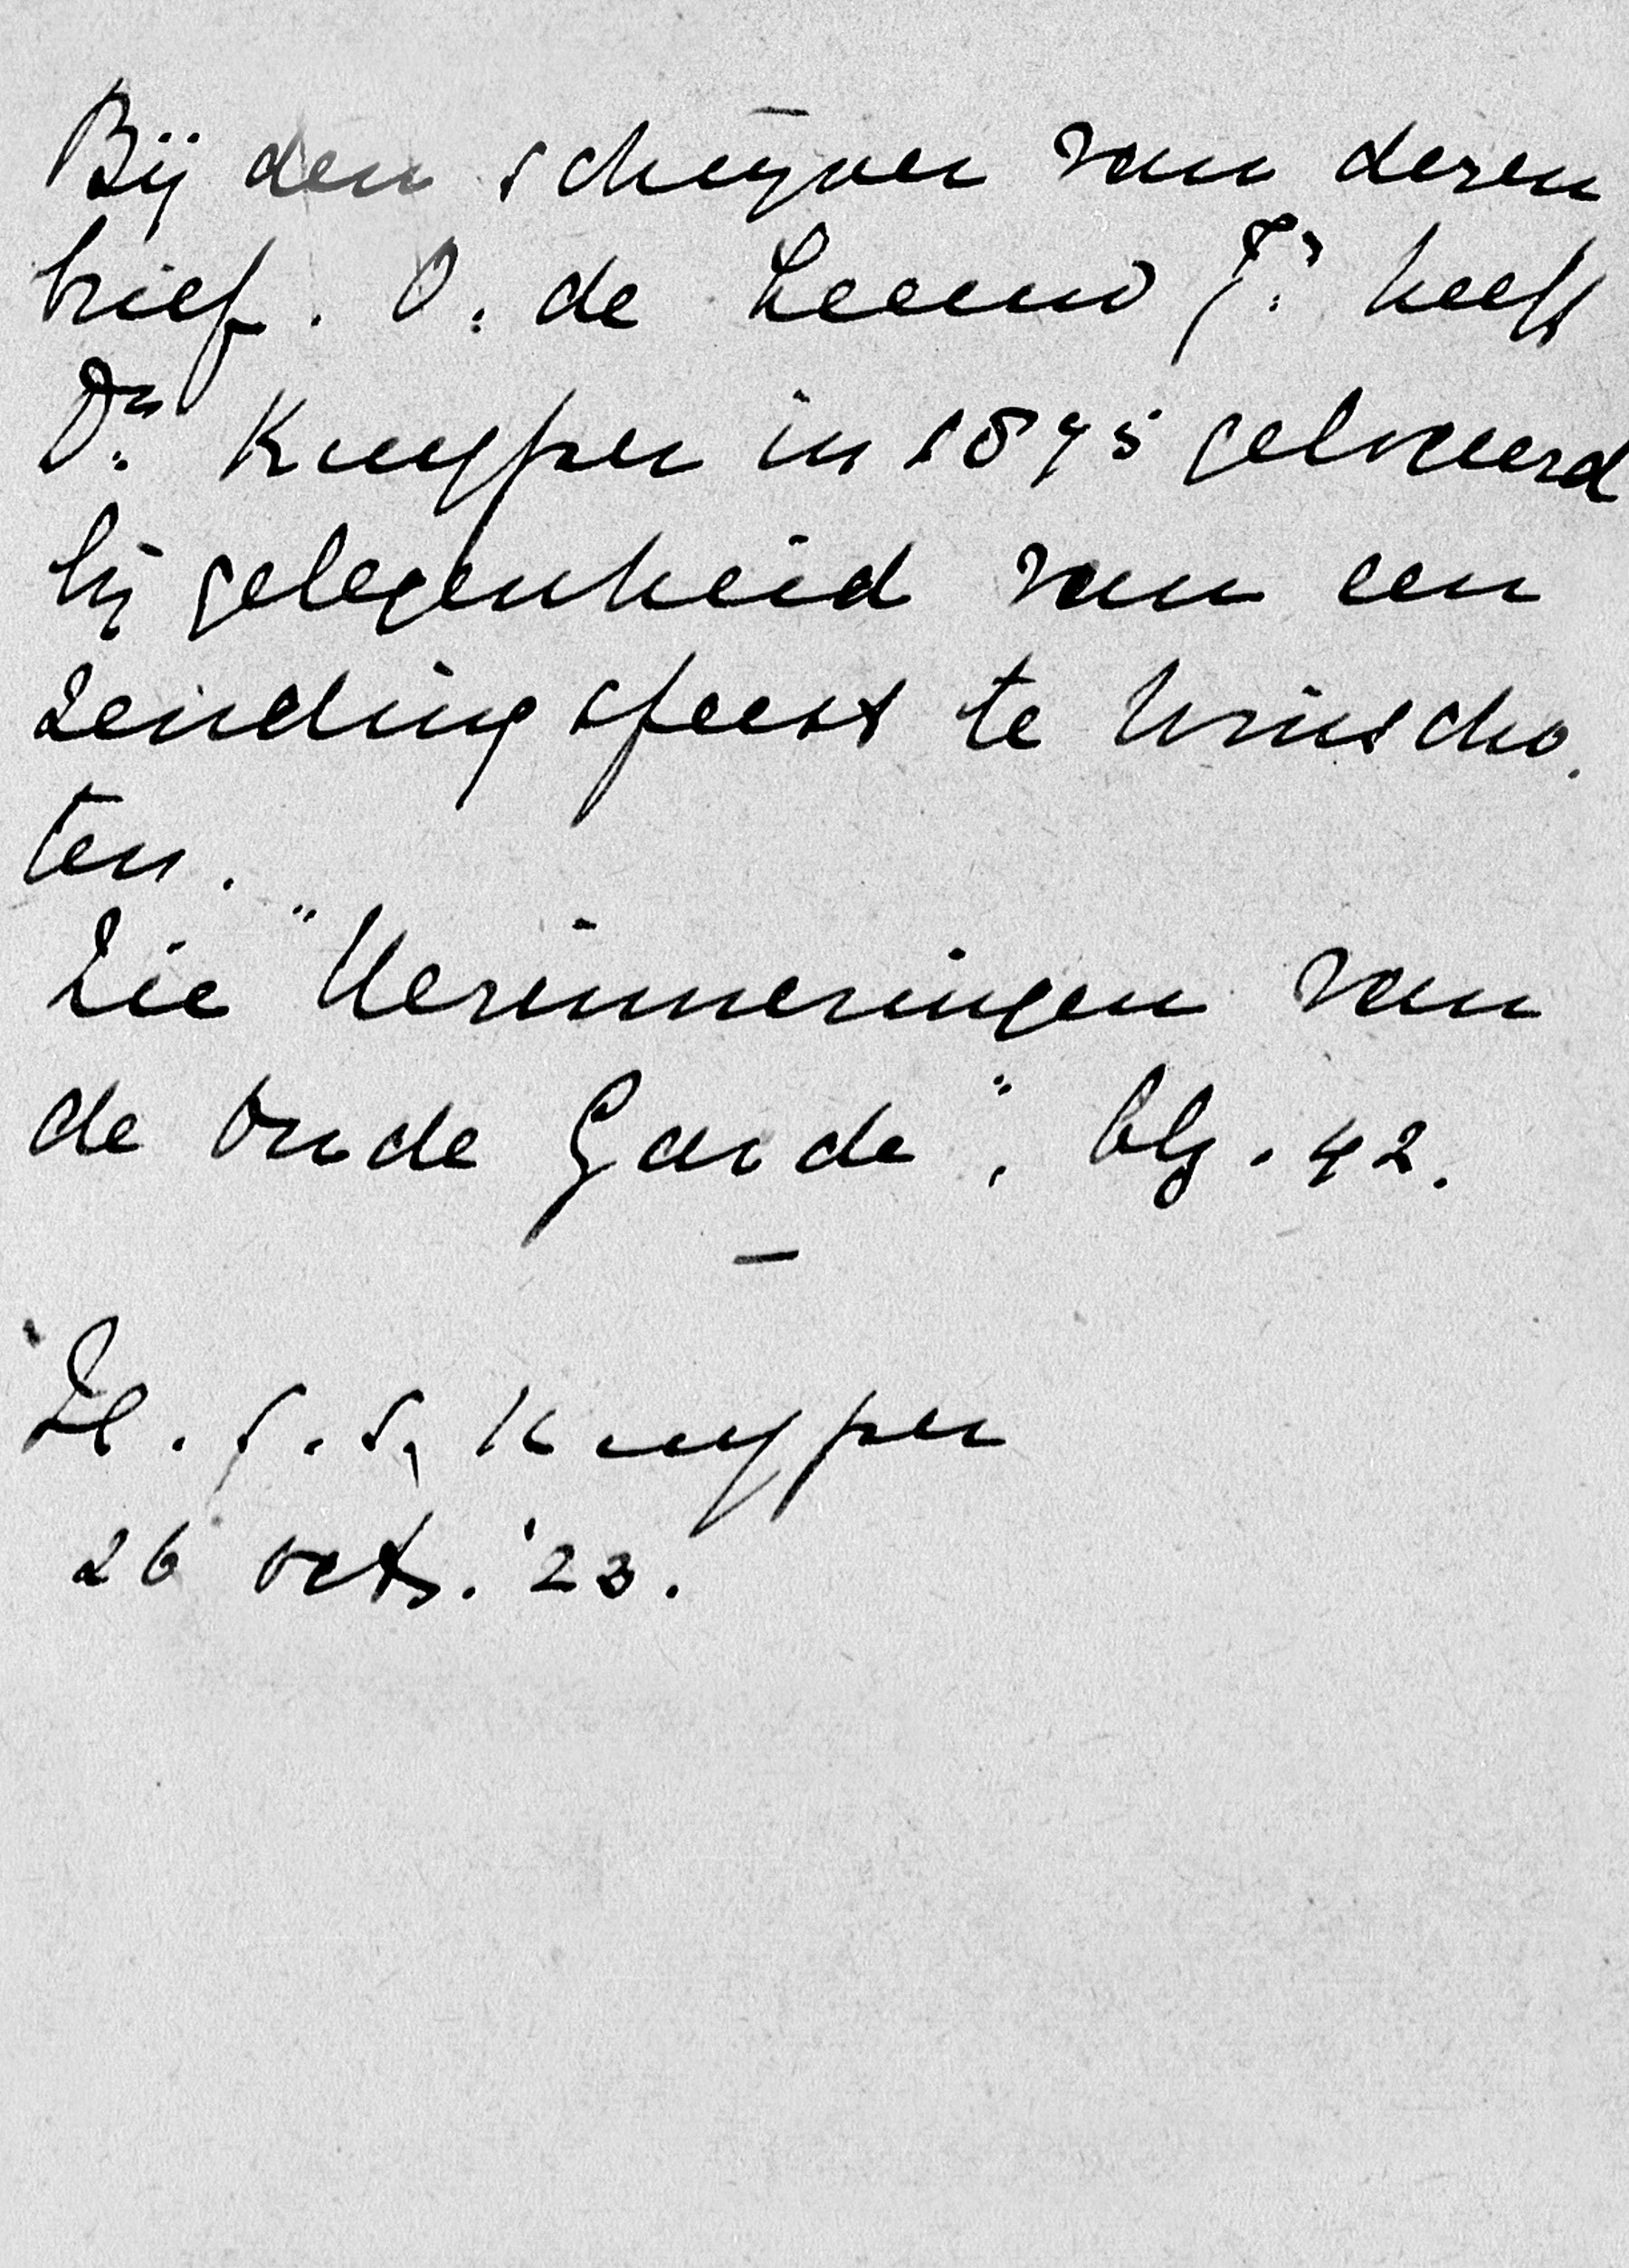 Bij den schrijver van dezen
brief. O. de Leeuw Jr. heeft
Dr. Kuyper in 1875 gelogeerd
bij gelegenheid van een
zendingsfeest te Winscho-
ten.
Zie "Herinneringen van
de Oude Garde", blz. 42.
—
H. S. S. Kuyper
26 oct. '23.